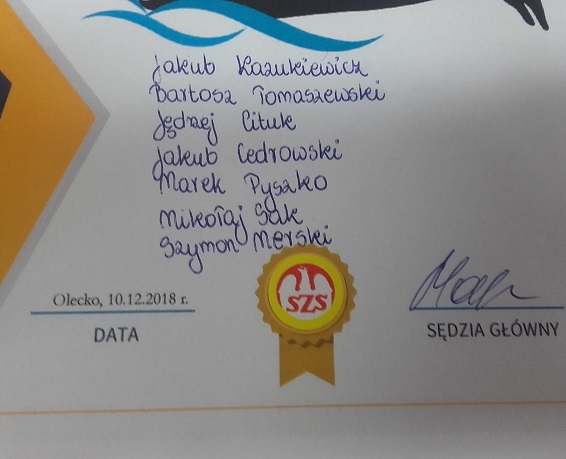 Jakub Kazukiewicz
Bartosz Tomaszewski
Jędrzej Cituk
Jakub Cedrowski
Marek Pyszko
Mikołaj Sak
Szymon Merski
Olecko, 10.12.2018 r.
DATA
SZS
SĘDZIA GŁÓWNY